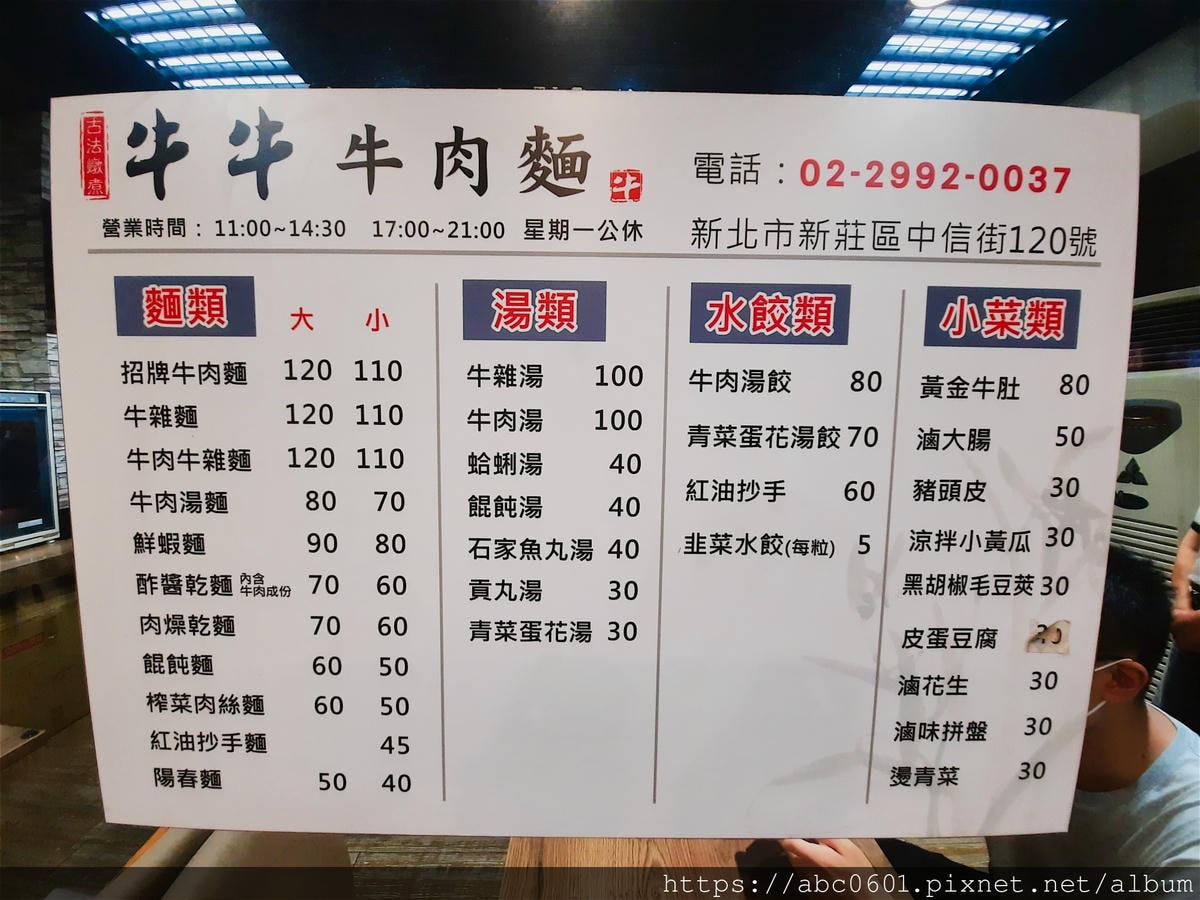 古法燉煮
牛牛牛肉麵
牛
電話：02-2992-0037
營業時間：11:00~14:30 17:00~21:00 星期一公休
新北市新莊區中信街120號
麵類 大 小
招牌牛肉麵 120 110
牛雜麵 120 110
牛肉牛雜麵 120 110
牛肉湯麵 80 70
鮮蝦麵 90 80
酢醬乾麵 內含牛肉成份 70 60
肉燥乾麵 70 60
餛飩麵 60 50
榨菜肉絲麵 60 50
紅油抄手麵 45
陽春麵 50 40
湯類
牛雜湯 100
牛肉湯 100
蛤蜊湯 40
餛飩湯 40
石家魚丸湯 40
貢丸湯 30
青菜蛋花湯 30
水餃類
牛肉湯餃 80
青菜蛋花湯餃 70
紅油抄手 60
韭菜水餃(每粒) 5
小菜類
黃金牛肚 80
滷大腸 50
豬頭皮 30
涼拌小黃瓜 30
黑胡椒毛豆莢 30
皮蛋豆腐
滷花生 30
滷味拼盤 30
燙青菜 30
https://abc0601.pixnet.net/album